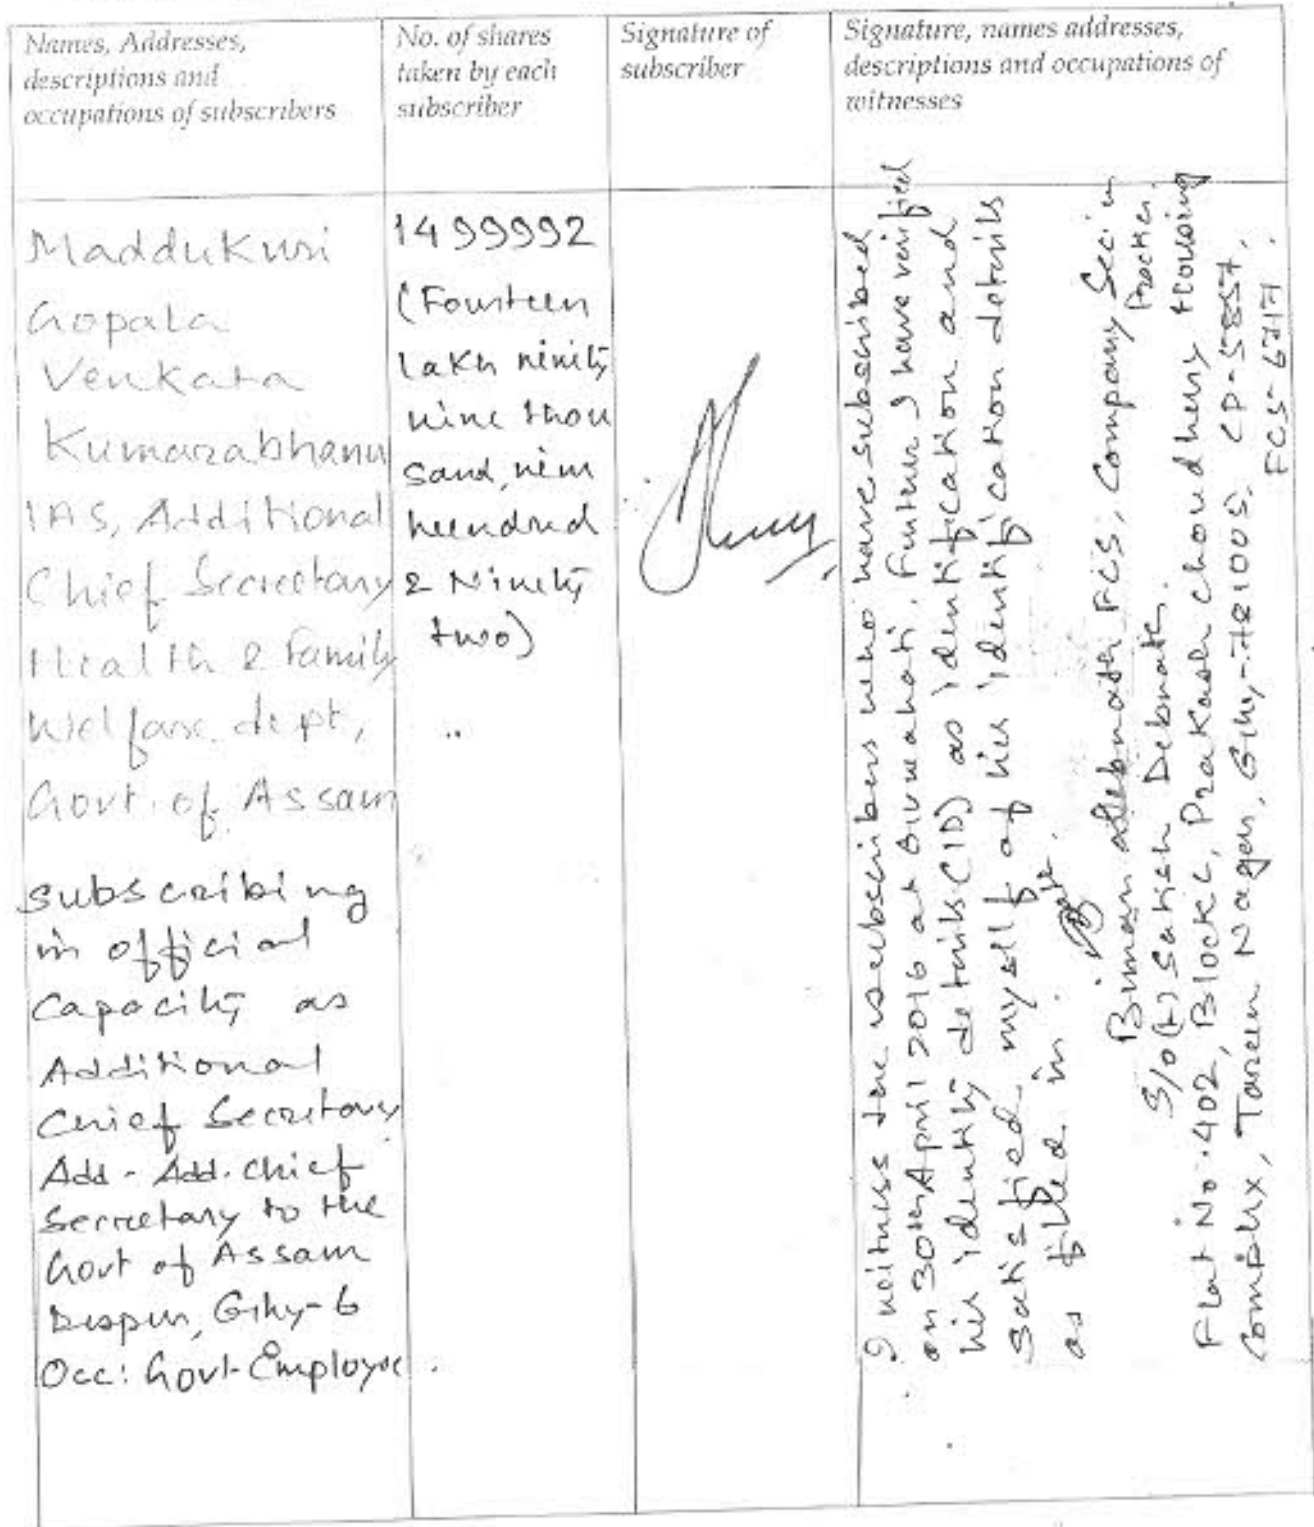 Names, Addresses,
descriptions and
occupations of subscribers
No. of shares
taken by each
subscriber
Signature of
subscriber
Signature, names addresses,
descriptions and occupations of
witnesses
Maddukuri
Gopala
Venkata
Kumarabhanu
IAS, Additional
Chief Secretary
Health & Family
Welfare dept,
Govt. of Assam
subscribing
in official
capacity as
Additional
Chief Secretary
Add - Add. Chief
Secretary to the
Govt of Assam
Dispur, Ghy-6
Occ: Govt-Employee
1499992
(Fourteen
lakh ninity
nine thou
sand, nine
hundred
& Ninety
two)
I witness the subscribers who have subscribed
on 30th April 2016 at Guwahati. Further I have verified
his identity details (ID) as identification and
satisfied myself of his identification details
as filled in.
Biman Debnath FCS, Company Sec in
Practice.
S/o (L) Satish Debnath.
Flat No. 402, Block C, Prakash Choudhury Housing
Complex, Tarun Nagar, Ghy-781005. CP-5857,
FCS-6717.